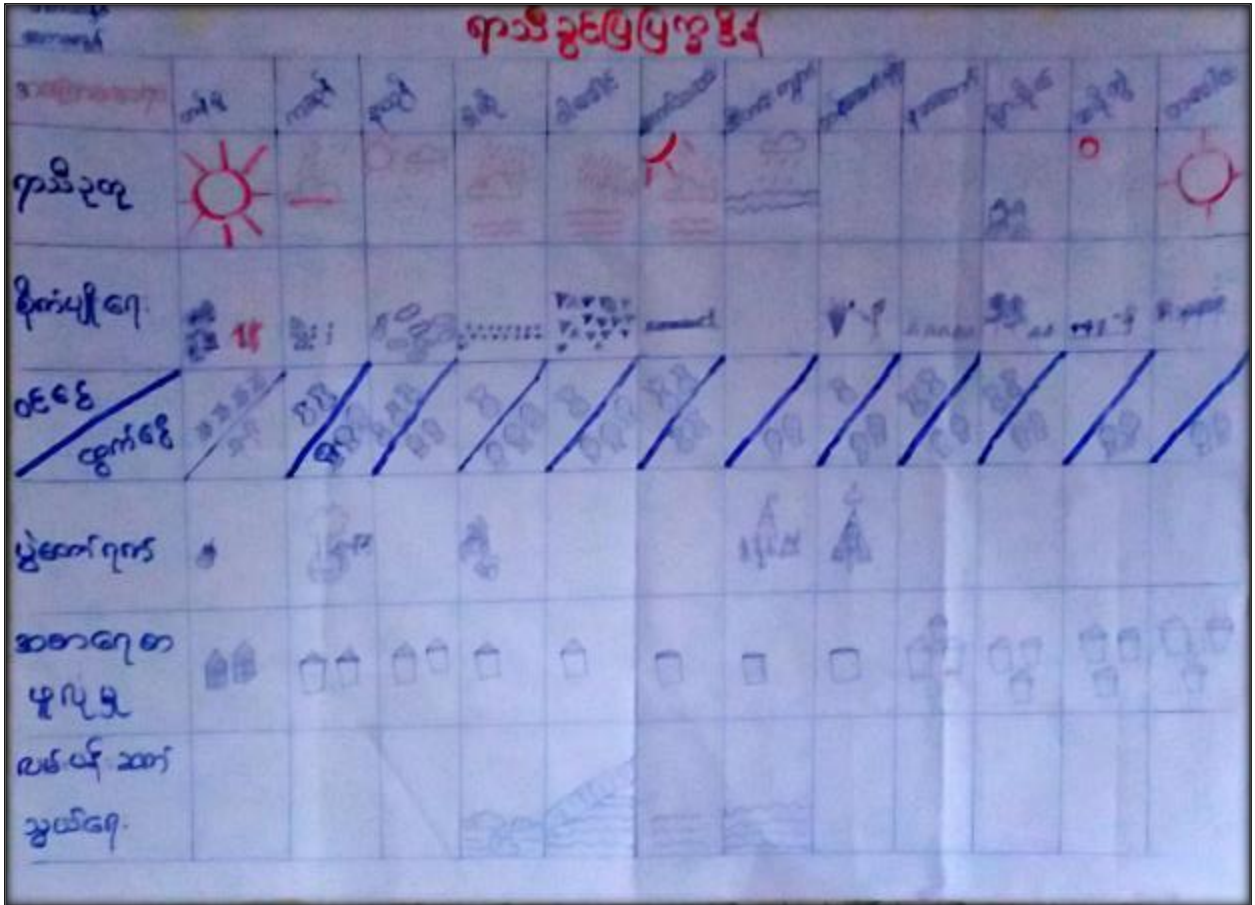 ရာသီခွင်ပြပြက္ခဒိန်
တန်ခူး ကဆုန် နယုန် ဝါဆို ဝါခေါင် တော်သလင်း သီတင်းကျွတ် တန်ဆောင်မုန်း နတ်တော် ပြာသို တပို့တွဲ တပေါင်း
ရာသီဥတု
စိုက်ပျိုးရေး
ဝင်ငွေ
ထွက်ငွေ
ပွဲတော်ရက်
အစားရေစာ
ဖူလုံမှု
လမ်းပန်းဆက်
သွယ်ရေး